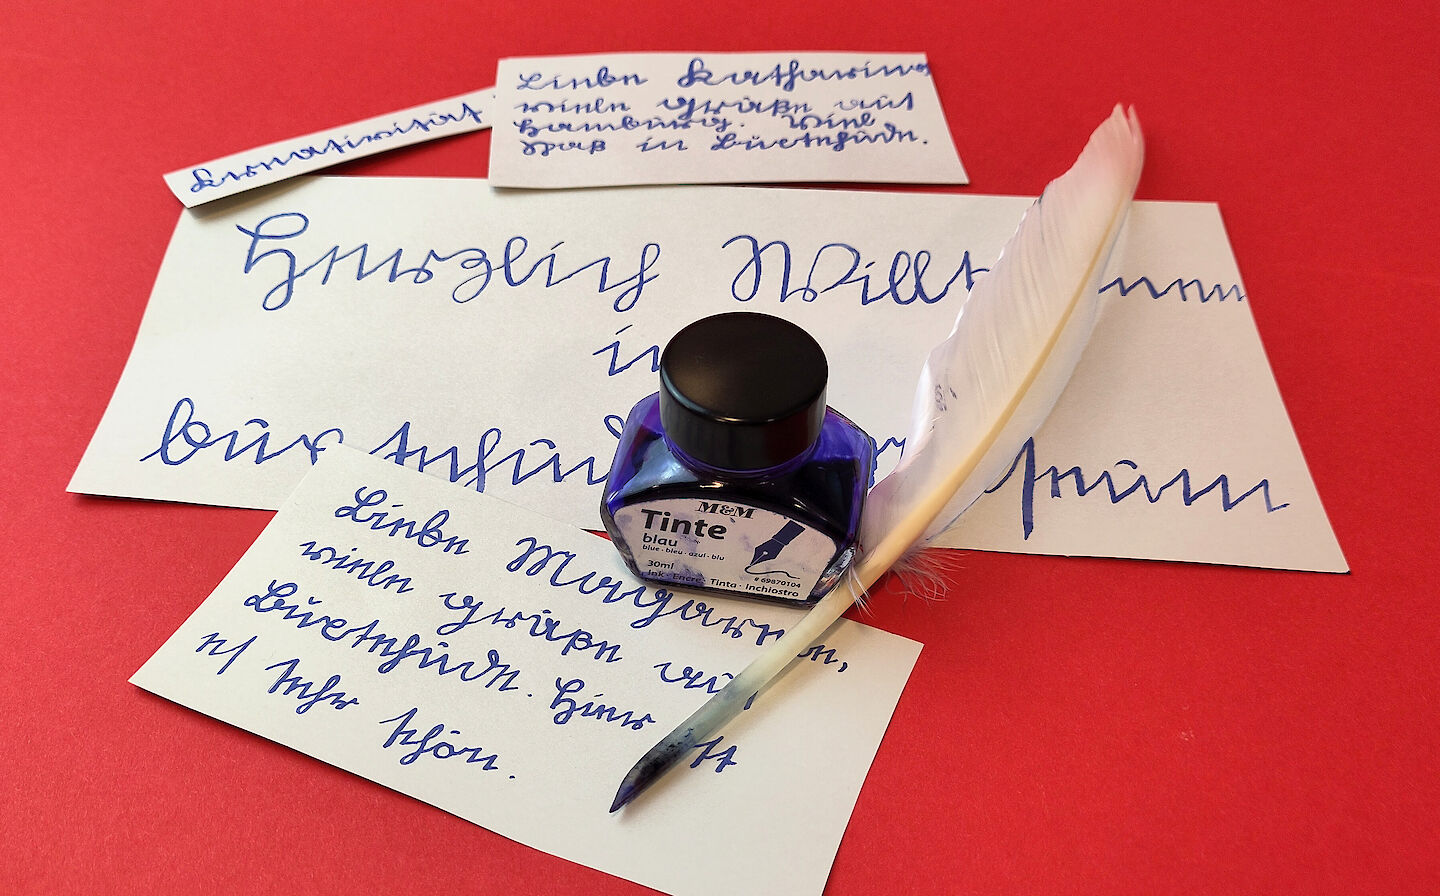 Kreativität.
Liebe Katharina
viele Grüße aus
Hamburg. Viel
Spaß in Buxtehude.
Herzlich Willkommen
Buxtehuder Museum
M&M
Tinte
blau
blue · bleu · azul · blu
30ml
# 69870104
Ink · Encre · Tinta · Inchiostro
Liebe Margarete,
viele Grüße aus
Buxtehude. Hier ist
es sehr schön.